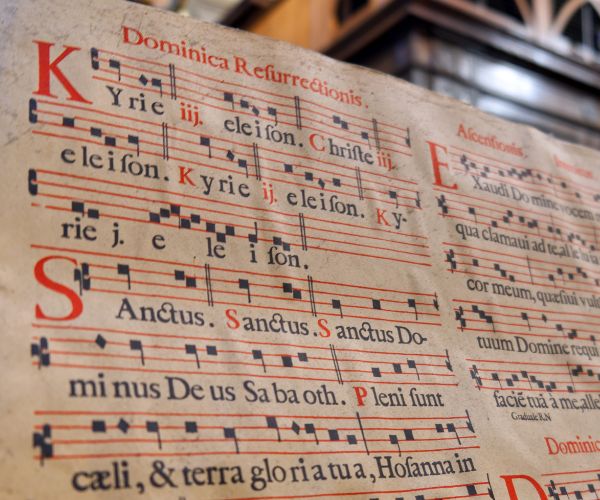 Dominica Reſurrectionis.
Kyrie iij. eleiſon. Chriſte iij.
eleiſon. Kyrie ij. eleiſon. Ky-
rie j. e le i ſon.
SAnctus. Sanctus. Sanctus Do-
minus Deus Sabaoth. Pleni ſunt
cæli, & terra gloria tua, Hoſanna in
Aſcenſionis.
EXaudi Domine vocem
qua clamaui ad te, alleluia
cor meum, quæſiui
tuum Domine requi
faciē tuā à me, alle
Graduale R.N
Dominic